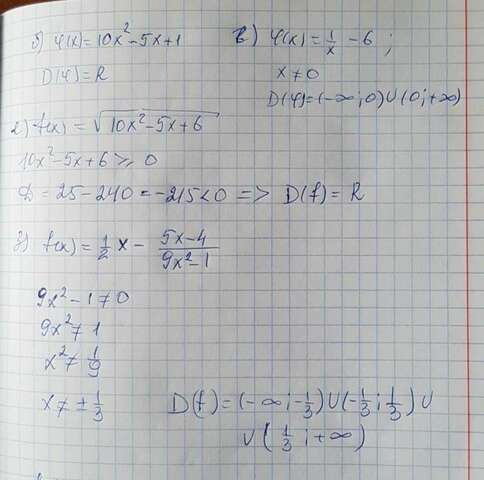 б) φ(x) = 10x² - 5x + 1
D(φ) = R
в) φ(x) = 1/x - 6 ;
x ≠ 0
D(φ) = (-∞; 0) ∪ (0; +∞)
г) f(x) = √(10x² - 5x + 6)
10x² - 5x + 6 ⩾ 0
D = 25 - 240 = -215 < 0 => D(f) = R
з) f(x) = 1/2 x - (5x - 4)/(9x² - 1)
9x² - 1 ≠ 0
9x² ≠ 1
x² ≠ 1/9
x ≠ ± 1/3
D(f) = (-∞; -1/3) ∪ (-1/3; 1/3) ∪
∪ (1/3; +∞)